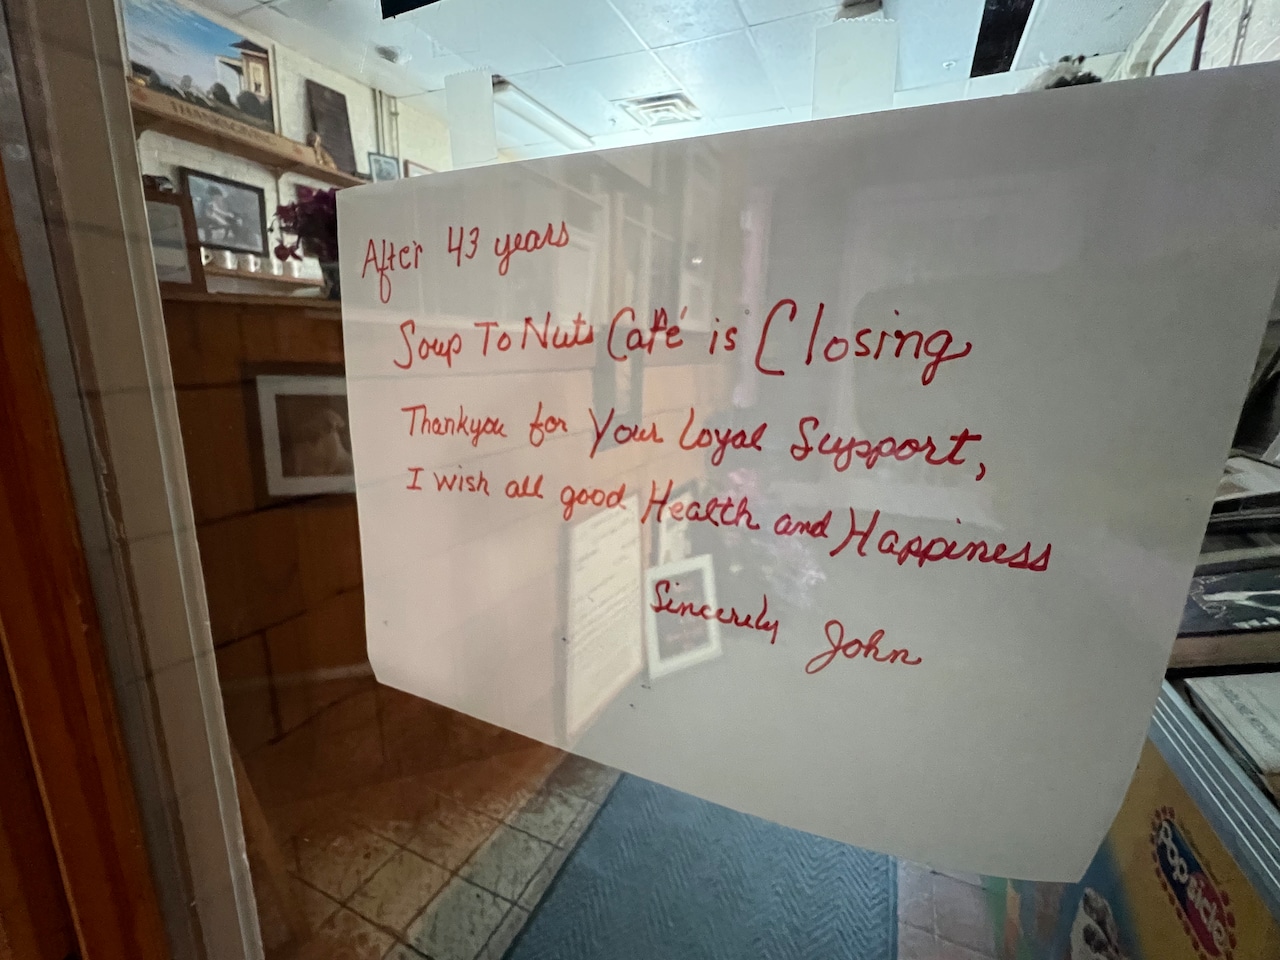 After 43 years
Soup To Nuts Café is Closing
Thankyou for Your Loyal Support,
I wish all good Health and Happiness
Sincerely John
THANKSGIVING
Popsicle